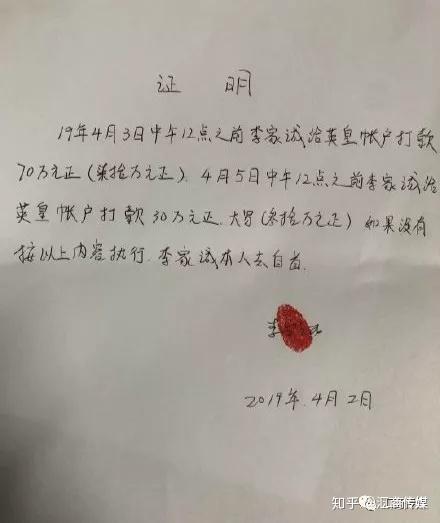 证 明
19年4月3日中午12点之前李家诚给英皇帐户打款
70万元正(柒拾万元正).4月5日中午12点之前李家诚给
英皇帐户打款30万元正.大写(叁拾万元正)如果没有
按以上内容执行.李家诚本人去自首.
李
2019年.4月2日
知乎 @江商传媒